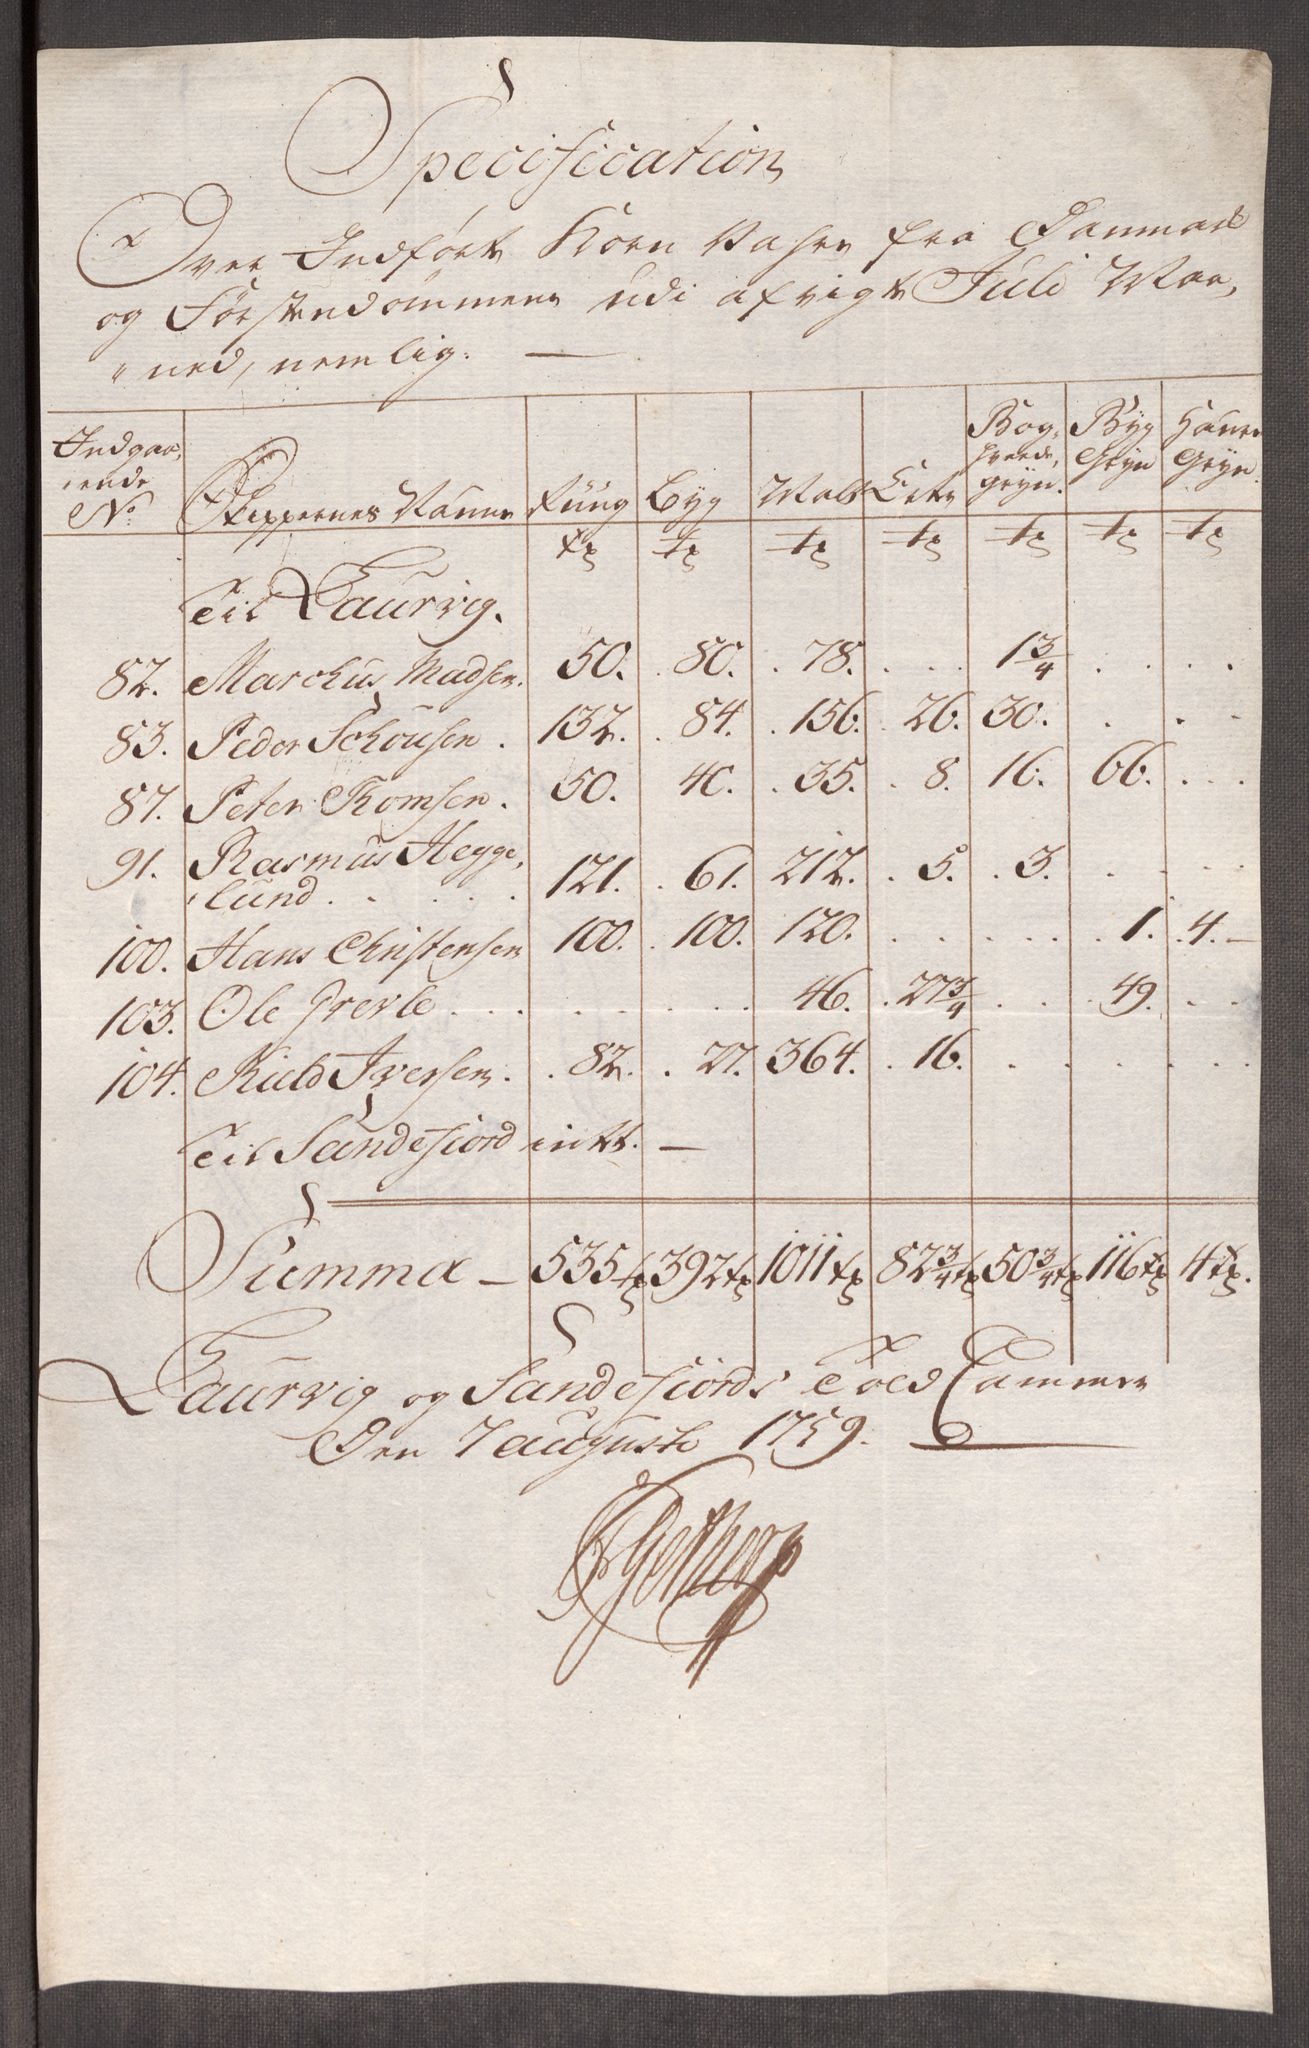 Specification
Over Indført Korn Vahre fra Danmark
og Førstendommene udi afvigte Juli Maa-
ned, nemlig. —
Indgaa-
ende
No. | Skippernes Nafne | Rüug | Byg | Malt | Erter | Bog-
hvede
gryn. | Byg
Gryn | Haure
Gryn.
tr | tr | tr | tr | tr | tr | tr
Til Laurvig.
82. Marchus Madsen. 50. 80. 78. . . 1 3/4 . . . .
83. Peder Schousen. 132. 84. 156. 26. 30. . . .
87. Peter Thomsen. 50. 40. 35. 8. 16. 66. . .
91. Rasmus Hegge-
lund . . . . . 121. 61. 212. 5. 3. . . . .
100. Hans Christensen 100. 100. 120. . . . . 1. 4. —
103. Ole . . . . . . 46. 27 3/4 . . 49. . .
104. Kield Iversen. 82. 27. 364. 16. . . . .
Til Sandefiord intet. —
Summa — 535 tr 392 tr 1011 tr 82 3/4 tr 50 3/4 tr 116 tr 4 tr.
Laurvig og Sandefiords Told Cammer
Den 7 augusti 1759.